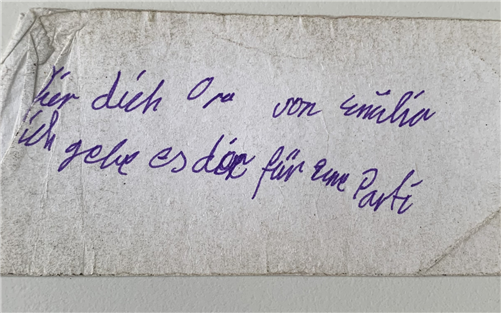 für dich Ora von Emilia
ich gebe es dir für eine Parti